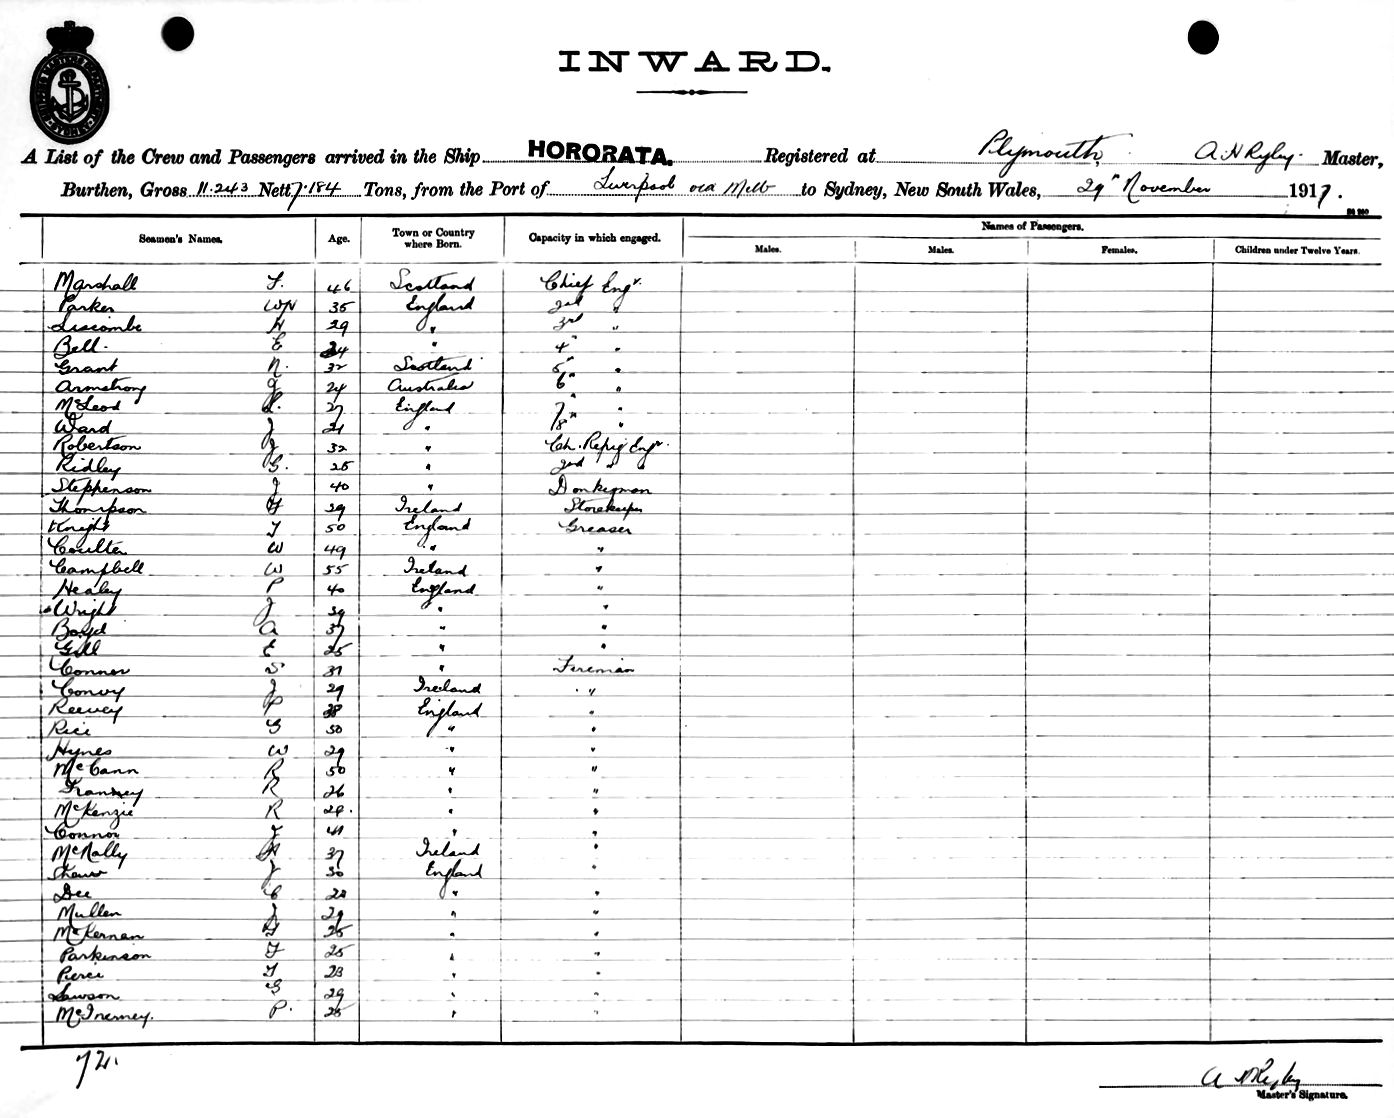 INWARD.
A List of the Crew and Passengers arrived in the Ship HORORATA. Registered at Plymouth, A H Rigby. Master,
Burthen, Gross 11.243 Nett 7.184 Tons, from the Port of Liverpool via Melb to Sydney, New South Wales, 29" November 1917.
Names of Passengers.
Seamen's Names. Age. Town or Country where Born. Capacity in which engaged. Males. Males. Females. Children under Twelve Years.
Marshall F. 46 Scotland Chief Engr.
Parker Wm 35 England 2nd "
Liscombe H 29 " 3rd "
Bell. E 24 " 4" "
Grant N. 32 Scotland 5" "
Armstrong J 24 Australia 6" "
McLeod 27 England 7" "
Ward J 21 " 8" "
Robertson J 32 " Ch. Refrig Engr.
Ridley G. 25 " 2nd " "
Stephenson J 40 " Donkeyman
Thompson 29 Ireland Storekeeper
Knight T 50 England Greaser
Coulter W 49 " "
Campbell W 55 Ireland "
Healey P 40 England "
Wright J 39 " "
Boyd A 37 " "
Gill E 25 " "
Connor S 31 " Fireman
Convoy J 29 Ireland "
Reevey P 38 England "
Rice G 50 " "
Hynes W 29 " "
McCann R 50 " "
Franney R 26 " "
McKenzie R 29. " "
Connor T 41 " "
McNally 37 Ireland "
J 30 England "
Dee C 28 " "
Mullen J 29 " "
McKernan 25 " "
Parkinson F 25 " "
Pierce T 23 " "
Lawson G 29 " "
McInerney. P. 25 " "
72.
A H Rigby
Master's Signature.